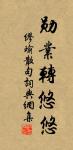 勛業轉悠悠
繆瑜散句詞典網集